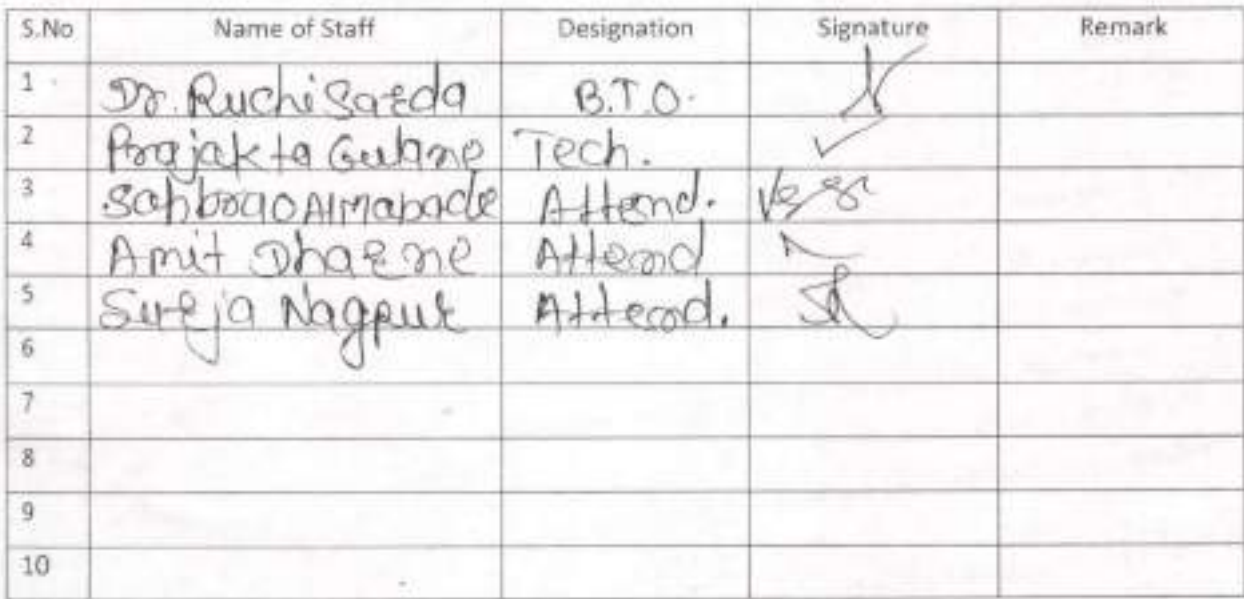 S.No Name of Staff Designation Signature Remark
1 Dr. Ruchi Sarda B.T.O.
2 Prajakta Gulane Tech.
3 Attend.
4 Amit Dharne Attend
5 Sureja Nagpur Attend.
6
7
8
9
10